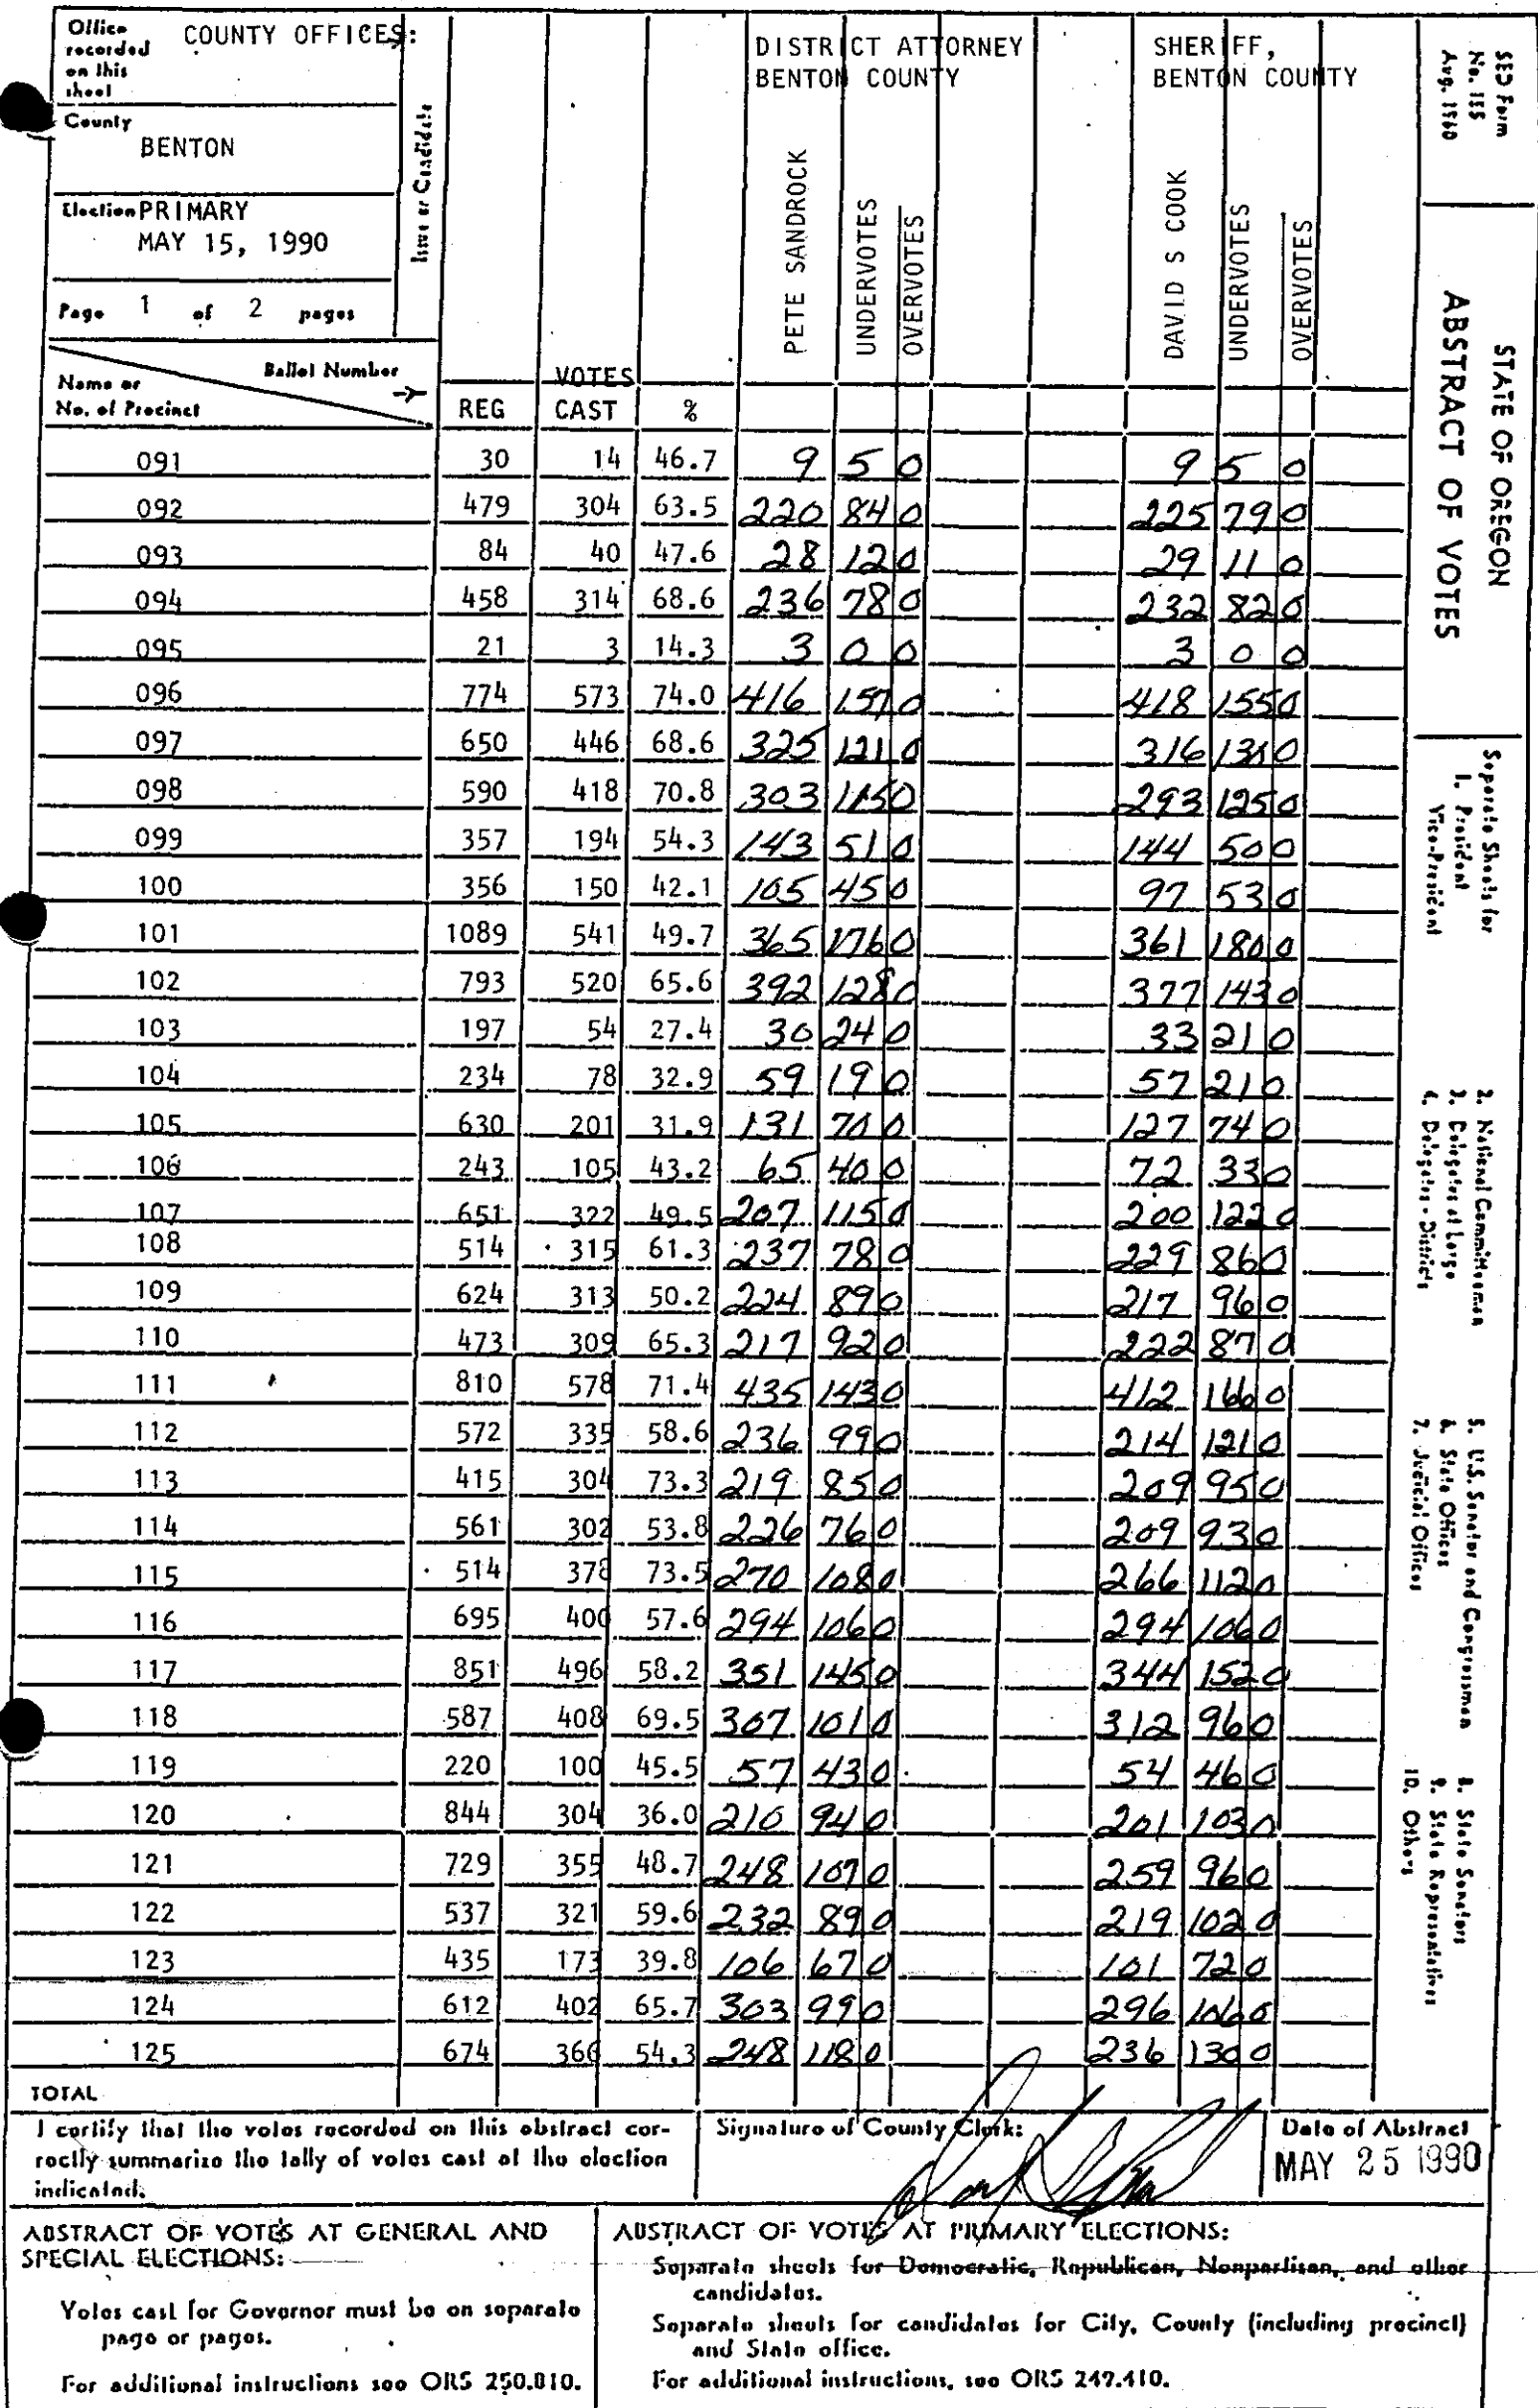 Office recorded on this sheet COUNTY OFFICES:
County
BENTON
Election PRIMARY
MAY 15, 1990
Page 1 of 2 pages
Issue or Candidate
DISTRICT ATTORNEY
BENTON COUNTY
SHERIFF,
BENTON COUNTY
PETE SANDROCK
UNDERVOTES
OVERVOTES
DAVID S COOK
UNDERVOTES
OVERVOTES
Ballot Number
Name or
No. of Precinct
REG VOTES CAST %
091 30 14 46.7 9 5 0 9 5 0
092 479 304 63.5 220 84 0 225 79 0
093 84 40 47.6 28 12 0 29 11 0
094 458 314 68.6 236 78 0 232 82 0
095 21 3 14.3 3 0 0 3 0 0
096 774 573 74.0 416 157 0 418 155 0
097 650 446 68.6 325 121 0 316 130 0
098 590 418 70.8 303 115 0 293 125 0
099 357 194 54.3 143 51 0 144 50 0
100 356 150 42.1 105 45 0 97 53 0
101 1089 541 49.7 365 176 0 361 180 0
102 793 520 65.6 392 128 0 377 143 0
103 197 54 27.4 30 24 0 33 21 0
104 234 78 32.9 59 19 0 57 21 0
105 630 201 31.9 131 70 0 127 74 0
106 243 105 43.2 65 40 0 72 33 0
107 651 322 49.5 207 115 0 200 122 0
108 514 315 61.3 237 78 0 229 86 0
109 624 313 50.2 224 89 0 217 96 0
110 473 309 65.3 217 92 0 222 87 0
111 810 578 71.4 435 143 0 412 166 0
112 572 335 58.6 236 99 0 214 121 0
113 415 304 73.3 219 85 0 209 95 0
114 561 302 53.8 226 76 0 209 93 0
115 514 378 73.5 270 108 0 266 112 0
116 695 400 57.6 294 106 0 294 106 0
117 851 496 58.2 351 145 0 344 152 0
118 587 408 69.5 307 101 0 312 96 0
119 220 100 45.5 57 43 0 54 46 0
120 844 304 36.0 210 94 0 201 103 0
121 729 355 48.7 248 107 0 259 96 0
122 537 321 59.6 232 89 0 219 102 0
123 435 173 39.8 106 67 0 101 72 0
124 612 402 65.7 303 99 0 296 106 0
125 674 366 54.3 248 118 0 236 130 0
TOTAL
I certify that the votes recorded on this abstract cor-
rectly summarize the tally of votes cast at the election
indicated.
Signature of County Clerk:
Date of Abstract
MAY 25 1990
ABSTRACT OF VOTES AT GENERAL AND
SPECIAL ELECTIONS:
Votes cast for Governor must be on separate
page or pages.
For additional instructions see ORS 250.810.
ABSTRACT OF VOTES AT PRIMARY ELECTIONS:
Separate sheets for Democratic, Republican, Nonpartisan, and other
candidates.
Separate sheets for candidates for City, County (including precinct)
and State office.
For additional instructions, see ORS 249.410.
SED Form
No. 155
Aug. 1960
STATE OF OREGON
ABSTRACT OF VOTES
Separate Sheets for
1. President
Vice-President
2. National Committeemen
3. Delegates at Large
4. Delegates - Districts
5. U.S. Senator and Congressman
6. State Offices
7. Judicial Offices
8. State Senators
9. State Representatives
10. Others